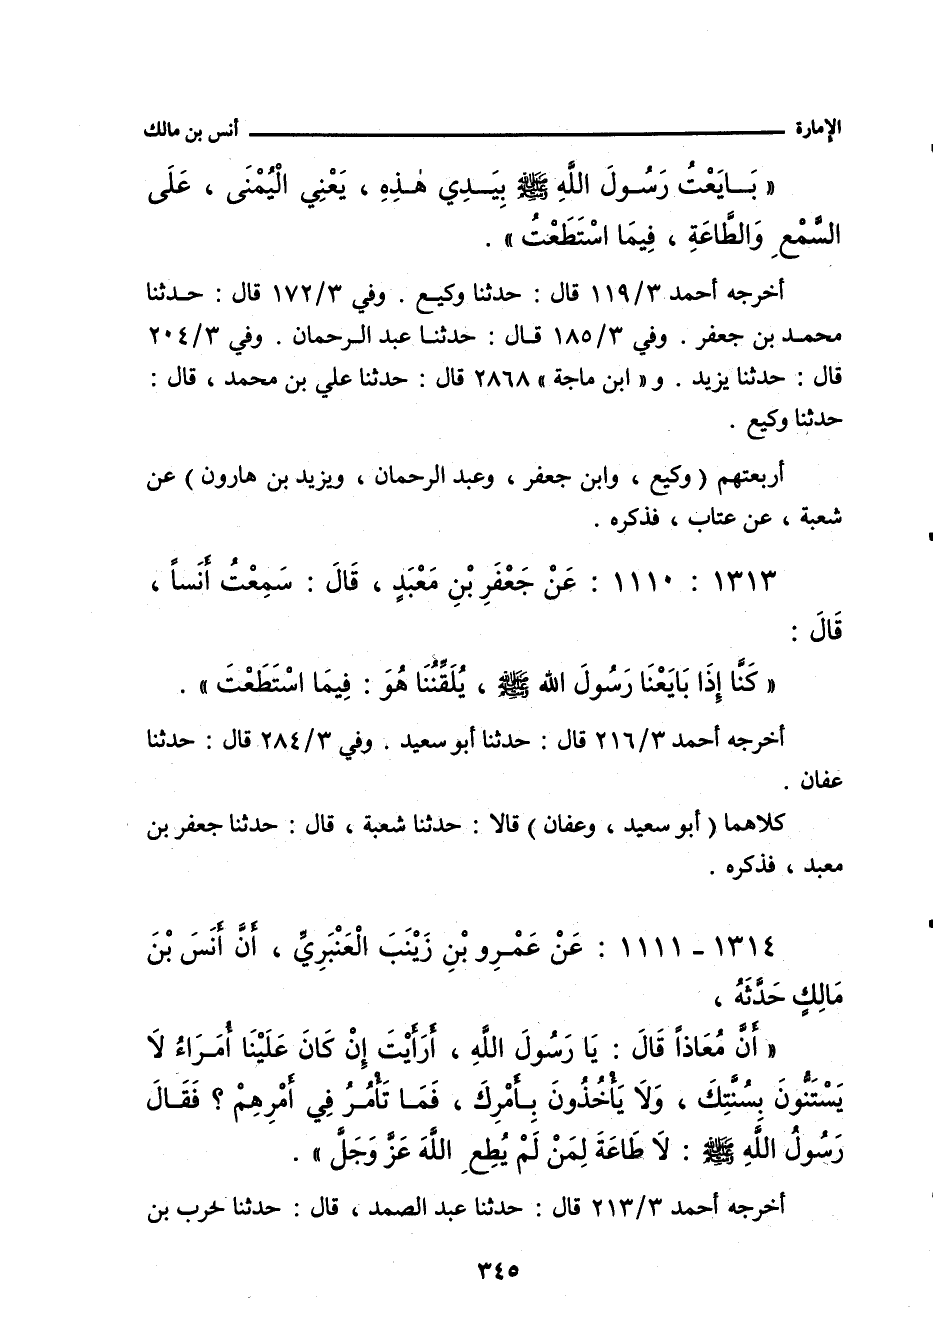 الإمارة ــــــــــ أنس بن مالك
« بَـايَعْتُ رَسُـولَ اللَّهِ ﷺ بِيَـدِي هٰـذِهِ ، يَعْنِي الْيُمْنَى ، عَلَى
السَّمْعِ وَالطَّاعَةِ ، فِيمَا اسْتَطَعْتُ » .
أخرجه أحمد ١١٩/٣ قال : حدثنا وكيـع . وفي ١٧٢/٣ قال : حـدثنا
محمـد بن جعفر . وفي ١٨٥/٣ قـال : حدثنـا عبد الـرحمان . وفي ٢٠٤/٣
قال : حدثنا يزيد . و« ابن ماجة » ٢٨٦٨ قال : حدثنا علي بن محمد ، قال :
حدثنا وكيع .
أربعتهم ( وكيع ، وابن جعفر ، وعبد الرحمان ، ويزيد بن هارون ) عن
شعبة ، عن عتاب ، فذكره .
١٣١٣ : ١١١٠ : عَنْ جَعْفَرِ بْنِ مَعْبَدٍ ، قَالَ : سَمِعْتُ أَنَساً ،
قَالَ :
« كَنَّا إِذَا بَايَعْنَا رَسُولَ الله ﷺ ، يُلَقِّنُنَا هُوَ : فِيمَا اسْتَطَعْتَ » .
أخرجه أحمد ٢١٦/٣ قال : حدثنا أبو سعيد . وفي ٢٨٤/٣ قال : حدثنا
عفان .
كلاهما ( أبو سعيد ، وعفان ) قالا : حدثنا شعبة ، قال : حدثنا جعفر بن
معبد ، فذكره .
١٣١٤ - ١١١١ : عَنْ عَمْـرِو بْنِ زَيْنَبَ الْعَنْبَرِيِّ ، أَنَّ أَنَسَ بْنَ
مَالِكٍ حَدَّثَهُ ،
« أَنَّ مُعَاذاً قَالَ : يَا رَسُولَ اللَّهِ ، أَرَأَيْتَ إِنْ كَانَ عَلَيْنَا أُمَـرَاءُ لَا
يَسْتَنُّونَ بِسُنَّتِكَ ، وَلَا يَأْخُذُونَ بِـأَمْرِكَ ، فَمَـا تَأْمُـرُ فِي أَمْرِهِمْ ؟ فَقَـالَ
رَسُولُ اللَّهِ ﷺ : لَا طَاعَةَ لِمَنْ لَمْ يُطِعِ اللَّهَ عَزَّ وَجَلَّ » .
أخرجه أحمد ٢١٣/٣ قال : حدثنا عبد الصمد ، قال : حدثنا حرب بن
٣٤٥